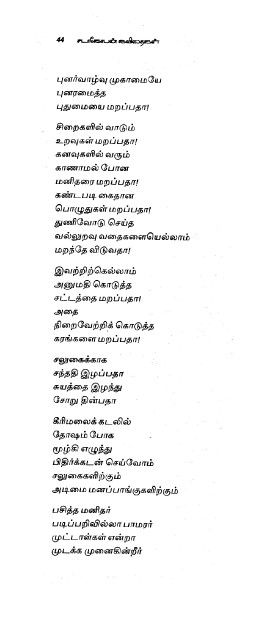 44
புனர்வாழ்வு முகாமையே
புனரமைத்த
புதுமையை மறப்பதா!
சிறைகளில் வாடும்
உறவுகள் மறப்பதா!
கனவுகளில் வரும்
காணாமல் போன
மனிதரை மறப்பதா!
கண்டபடி கைதான
பொழுதுகள் மறப்பதா!
துணிவோடு செய்த
வல்லுறவு வதைகளையெல்லாம்
மறந்தே விடுவதா!
இவற்றிற்கெல்லாம்
அனுமதி கொடுத்த
சட்டத்தை மறப்பதா!
அதை
நிறைவேற்றிக் கொடுத்த
கரங்களை மறப்பதா!
சலுகைக்காக
சந்ததி இழப்பதா
சுயத்தை இழந்து
சோறு தின்பதா
கீரிமலைக் கடலில்
தோஷம் போக
மூழ்கி எழுந்து
பிதிர்க்கடன் செய்வோம்
சலுகைகளிற்கும்
அடிமை மனப்பாங்குகளிற்கும்
பசித்த மனிதர்
படிப்பறிவில்லா பாமரர்
முட்டாள்கள் என்றா
முடக்க முனைகின்றீர்